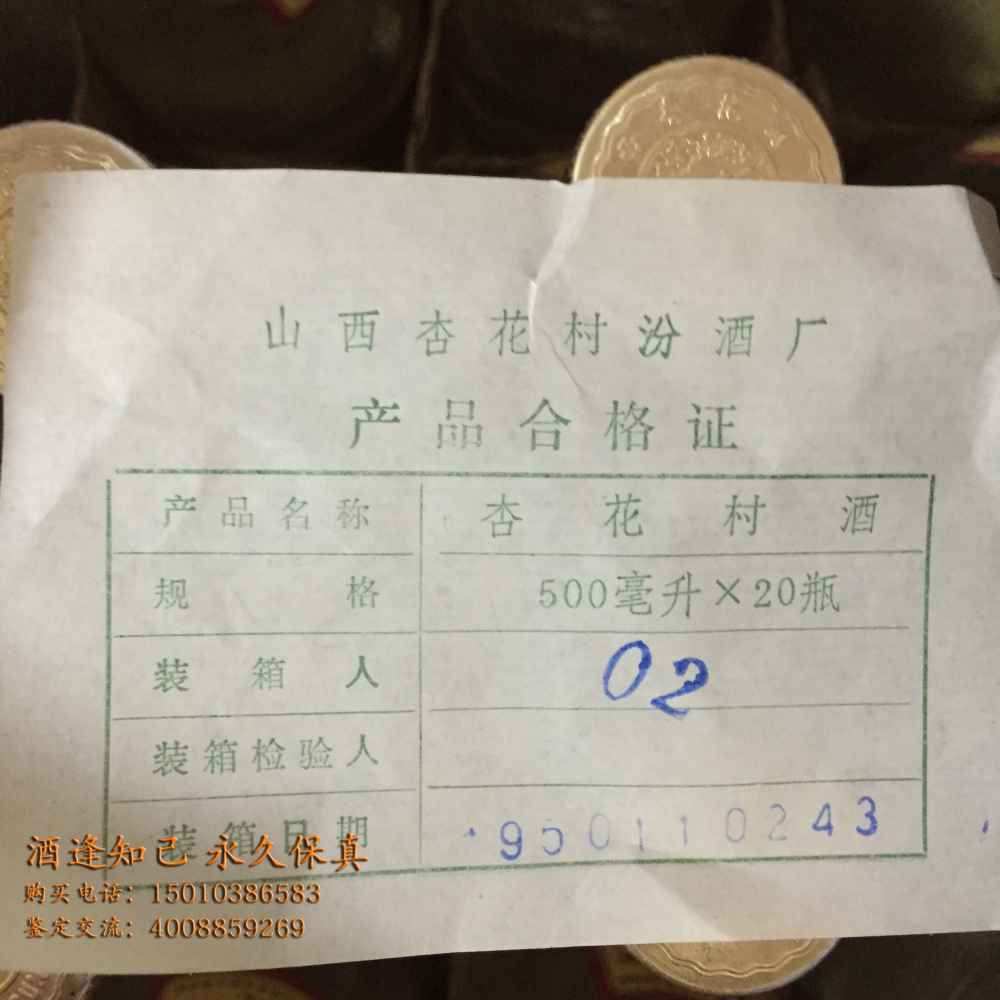 山西杏花村汾酒厂
产品合格证
产品名称 杏花村酒
规格 500毫升×20瓶
装箱人 02
装箱检验人
装箱日期 950110243
酒逢知己 永久保真
购买电话：15010386583
鉴定交流：4008859269